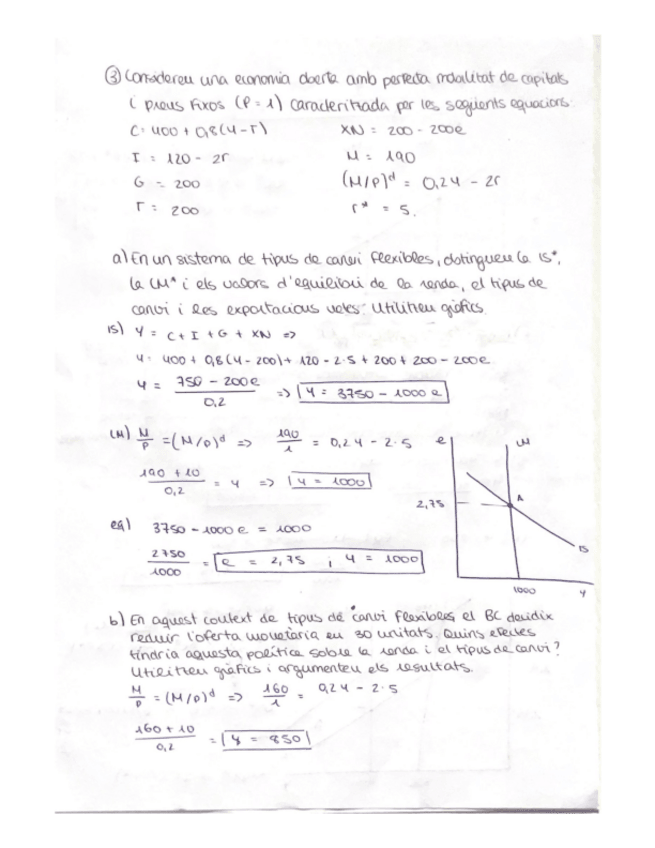 ③ Considereu una economia oberta amb perfecta mobilitat de capitals
i preus fixos (P = 1) caracteritzada per les següents equacions:
C = 400 + 0,8(Y - T)
XN = 200 - 200e
I = 120 - 2r
M = 190
G = 200
(M/P)ᵈ = 0,2Y - 2r
T = 200
r* = 5.
a) En un sistema de tipus de canvi flexibles, obtingueu la IS*,
la LM* i els valors d'equilibri de la renda, el tipus de
canvi i les exportacions netes. Utilitzeu gràfics.
IS) Y = C + I + G + XN =>
Y = 400 + 0,8(Y - 200) + 120 - 2·5 + 200 + 200 - 200e
Y = 750 - 200e / 0,2 => Y = 3750 - 1000e
LM) M/P = (M/P)ᵈ => 190/1 = 0,2Y - 2·5
190 + 10 / 0,2 = Y => Y = 1000
eq) 3750 - 1000e = 1000
2750 / 1000 = e = 2,75 i Y = 1000
e
LM
2,75
A
IS
1000
Y
b) En aquest context de tipus de canvi flexibles, el BC decideix
reduir l'oferta monetària en 30 unitats. Quins efectes
tindria aquesta política sobre la renda i el tipus de canvi?
Utilitzeu gràfics i argumenteu els resultats.
M/P = (M/P)ᵈ => 160/1 = 0,2Y - 2·5
160 + 10 / 0,2 = Y = 850